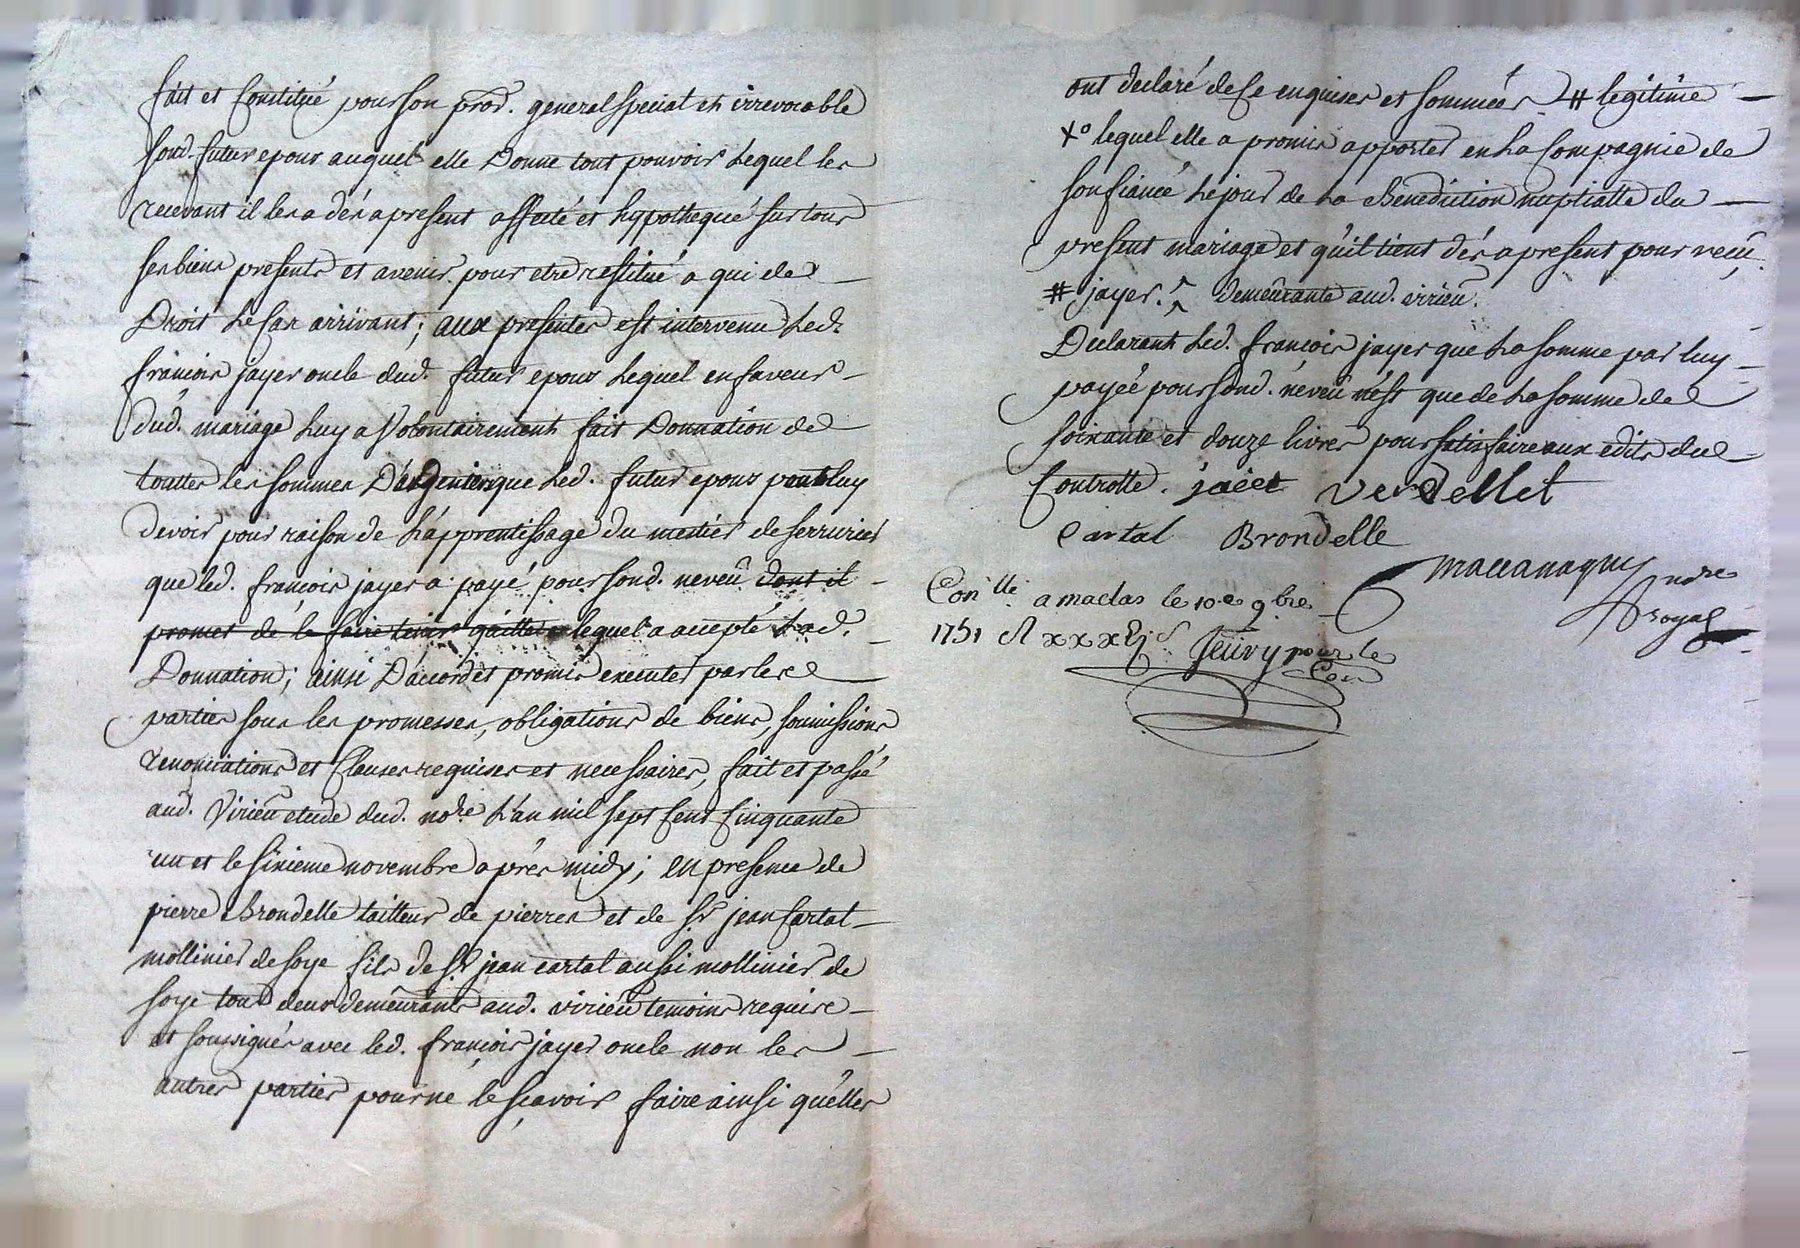 fait et Constitué pour son prod. general special et irrevocable
sond. futur epoux auquel elle Donne tout pouvoir Lequel les
recevant il les a dés apresent affecté et hypothequé sur tous
ses biens presents et avenir pour etre restitué a qui de
Droit Le Cas arrivant; aux presentes est intervenu Led.
françois jayer oncle dud. futur epoux Lequel en faveur
dud. mariage Luy a Volontairement fait Donnation de
touttes les sommes D'argent que Led. futur epoux peut luy
devoir pour raison de L'apprentissage du metier de serrurier
que led. françois jayer a payé pour sond. neveû dont il
promet de le faire tenir quitte lequel a accepté Lad.
Donnation; ainsi D'accord et promis executer par les
parties sous les promesses, obligations de biens, soumissions
renonciations et Clauses requises et necessaires, fait et passé
aud. Virieû etude dud. nore L'an mil sept Cent Cinquante
un et le sixieme novembre aprés midy; en presence de
pierre Brondelle tailleur de pierres et de Sr. jean Cartal
mollinier de soye fils de Sr jean cartal aussi mollinier de
soye tous deux demeûrants aud. virieû temoins requis
et soussignés avec led. françois jayer oncle non les
autres parties pour ne le sçavoir faire ainsi qu'elles
ont declaré de ce enquises et sommées # legitime
Xo lequel elle a promis apporter en La Compagnie de
son fiancé Le jour de La Benediction nuptialle du
present mariage et qu'il tient dés apresent pour reçû
# jayer. demeûrante aud. virieû.
Declarant Led. françois jayer que La somme par luy
payée pour sond. neveû n'est que de La somme de
soixante et douze livres pour satisfaire aux edits du
Controlle. jaiet Verdellet
Cartal Brondelle
maccanaguy
nore
Royal
Conlle a maclas le 10e 9bre
1751 R
pour le